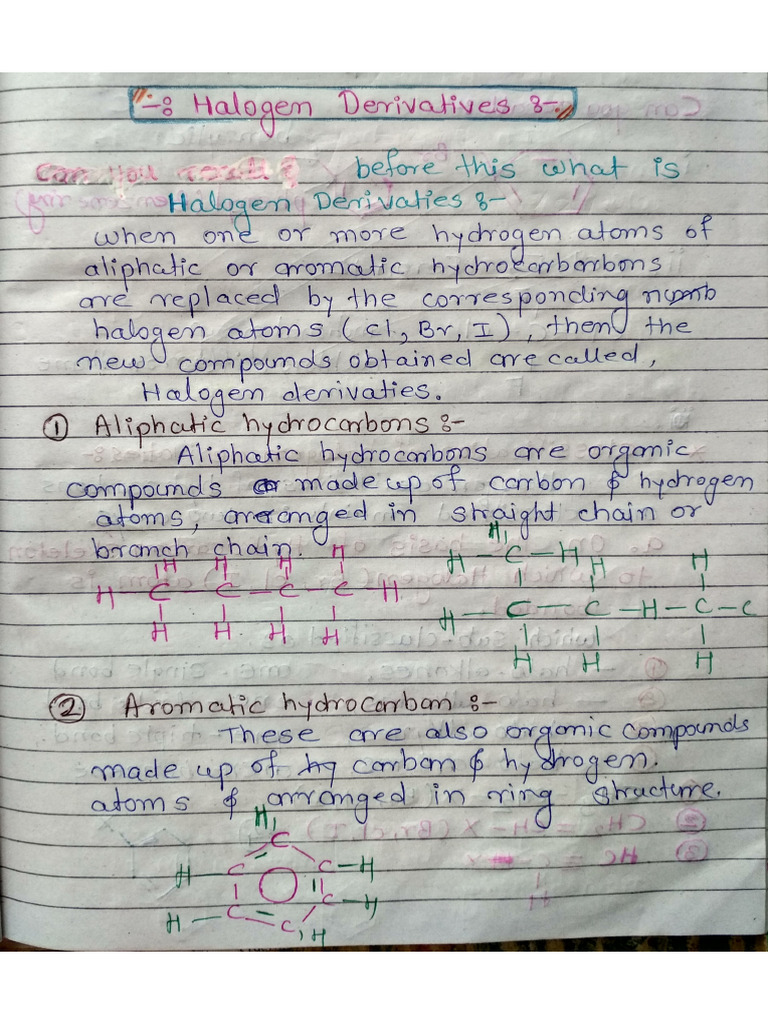 -: Halogen Derivatives :-
Can you recall ? before this what is
Halogen Derivaties :-
when one or more hydrogen atoms of
aliphatic or aromatic hydrocarborbons
are replaced by the corresponding numb
halogen atoms (Cl, Br, I), then the
new compounds obtained are called,
Halogen derivaties.
① Aliphatic hydrocarbons :-
Aliphatic hydrocarbons are organic
compounds made up of carbon & hydrogen
atoms, arranged in straight chain or
branch chain.
H H H H H
H - C - C - C - C - H H - C - H H H
H - C - C - H - C - C
H H H H H H H
② Aromatic hydrocarbon :-
These are also organic compounds
made up of hy carbon & hydrogen.
atoms & arranged in ring structure.
H
C
H - C C - H
H - C C - H
C H